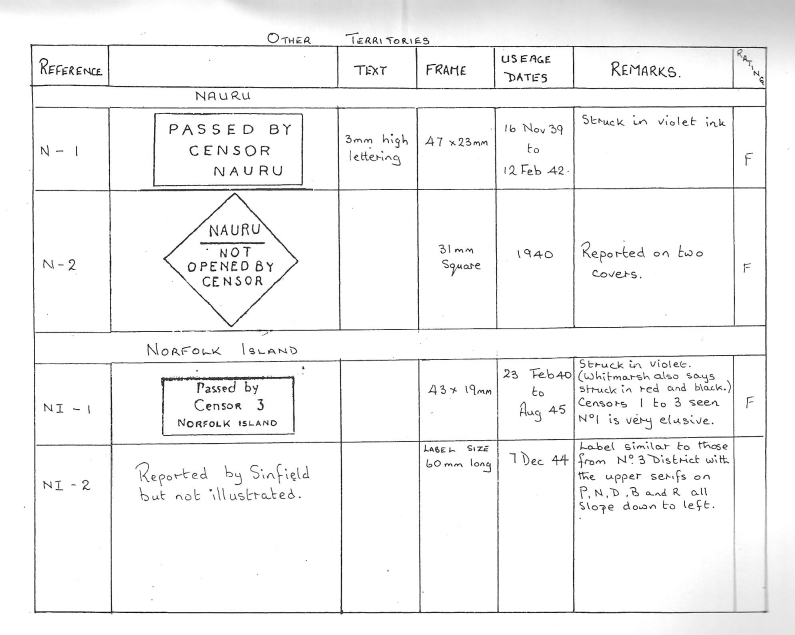 OTHER TERRITORIES
REFERENCE TEXT FRAME USEAGE DATES REMARKS. RATING
NAURU
N - 1
PASSED BY
CENSOR
NAURU
3mm high
lettering
47 x 23mm
16 Nov 39
to
12 Feb 42.
Struck in violet ink
F
N - 2
NAURU
NOT
OPENED BY
CENSOR
31mm
Square
1940
Reported on two
covers.
F
NORFOLK ISLAND
NI - 1
Passed by
Censor 3
NORFOLK ISLAND
43 x 19mm
23 Feb 40
to
Aug 45
Struck in violet.
(Whitmarsh also says
struck in red and black.)
Censors 1 to 3 seen
Nº1 is very elusive.
F
NI - 2
Reported by Sinfield
but not illustrated.
LABEL SIZE
60mm long
7 Dec 44
Label similar to those
from Nº 3 District with
the upper serifs on
P, N, D, B and R all
Slope down to left.